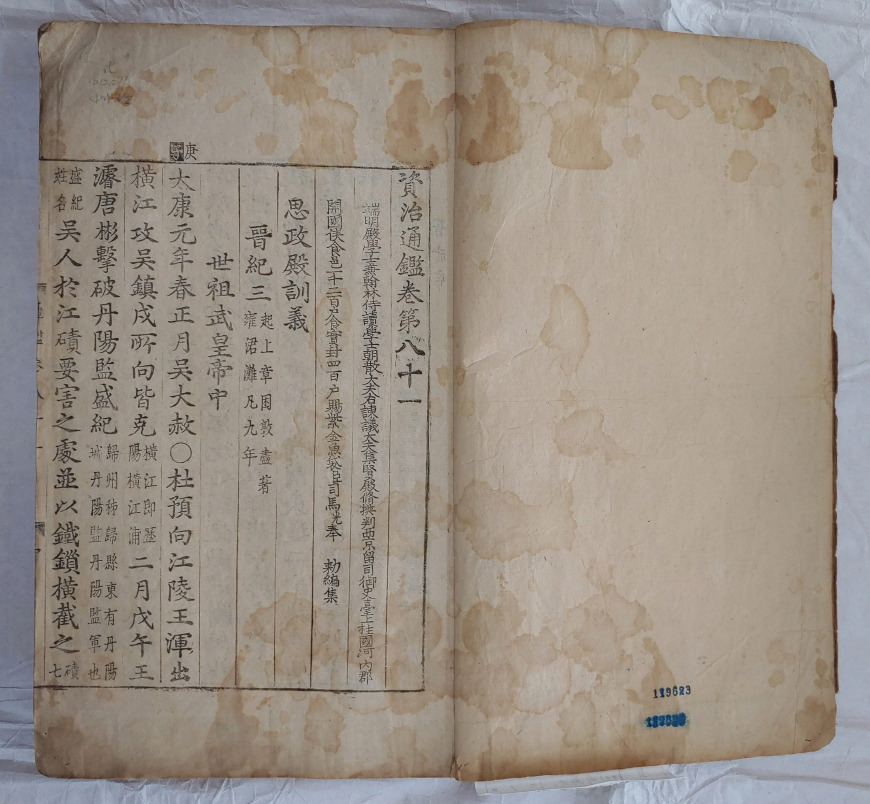 資治通鑑卷第八十一
端明殿學士兼翰林侍讀學士朝散大夫右諫議大夫集賢殿修撰判西京留司御史臺上柱國河內郡
開國侯食邑一千二百户食實封四百户賜紫金魚袋臣司馬光奉 勑編集
思政殿訓義
晉紀三起上章困敦盡著雍涒灘凡九年
世祖武皇帝中
庚
大康元年春正月吳大赦〇杜預向江陵王渾出
橫江攻吳鎮戍所向皆克橫江即歷陽橫江浦二月戊午王
濬唐彬擊破丹陽監盛紀歸州秭歸縣東有丹陽城丹陽監丹陽監軍也
盛紀姓名吳人於江磧要害之處並以鐵鎖橫截之磧七
119623